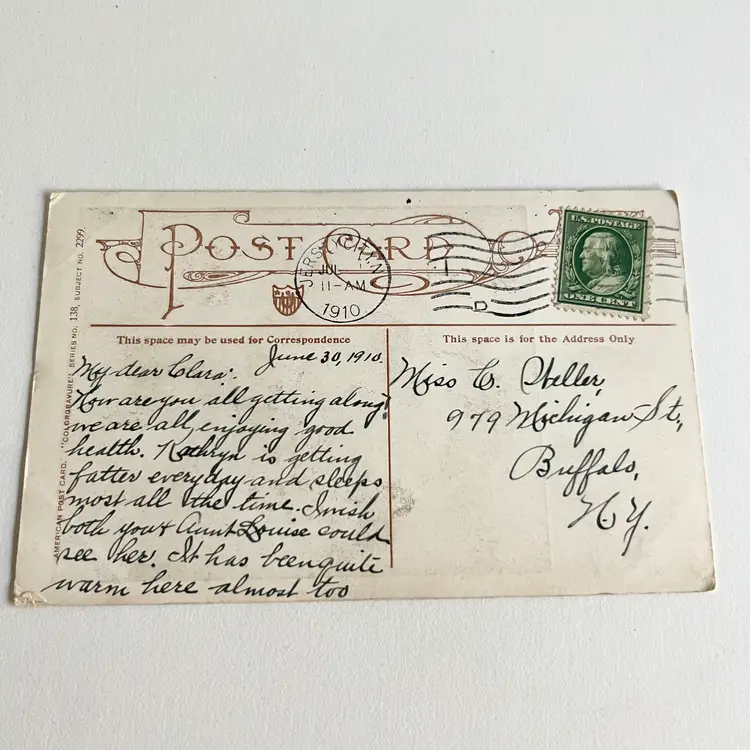 POST CARD
JERSEY CITY, N.J.
JUL
11-AM
1910
D
U.S. POSTAGE
ONE CENT
This space may be used for Correspondence
This space is for the Address Only
AMERICAN POST CARD. "COLORGRAVURE" SERIES NO. 138, SUBJECT NO. 2299.
June 30, 1910.
My dear Clara:
How are you all getting along?
we are all enjoying good
health. Kathryn is getting
fatter every day and sleeps
most all the time. I wish
both you & Aunt Louise could
see her. It has been quite
warm here almost too
Miss C. Weller,
979 Michigan St.,
Buffalo,
N.Y.